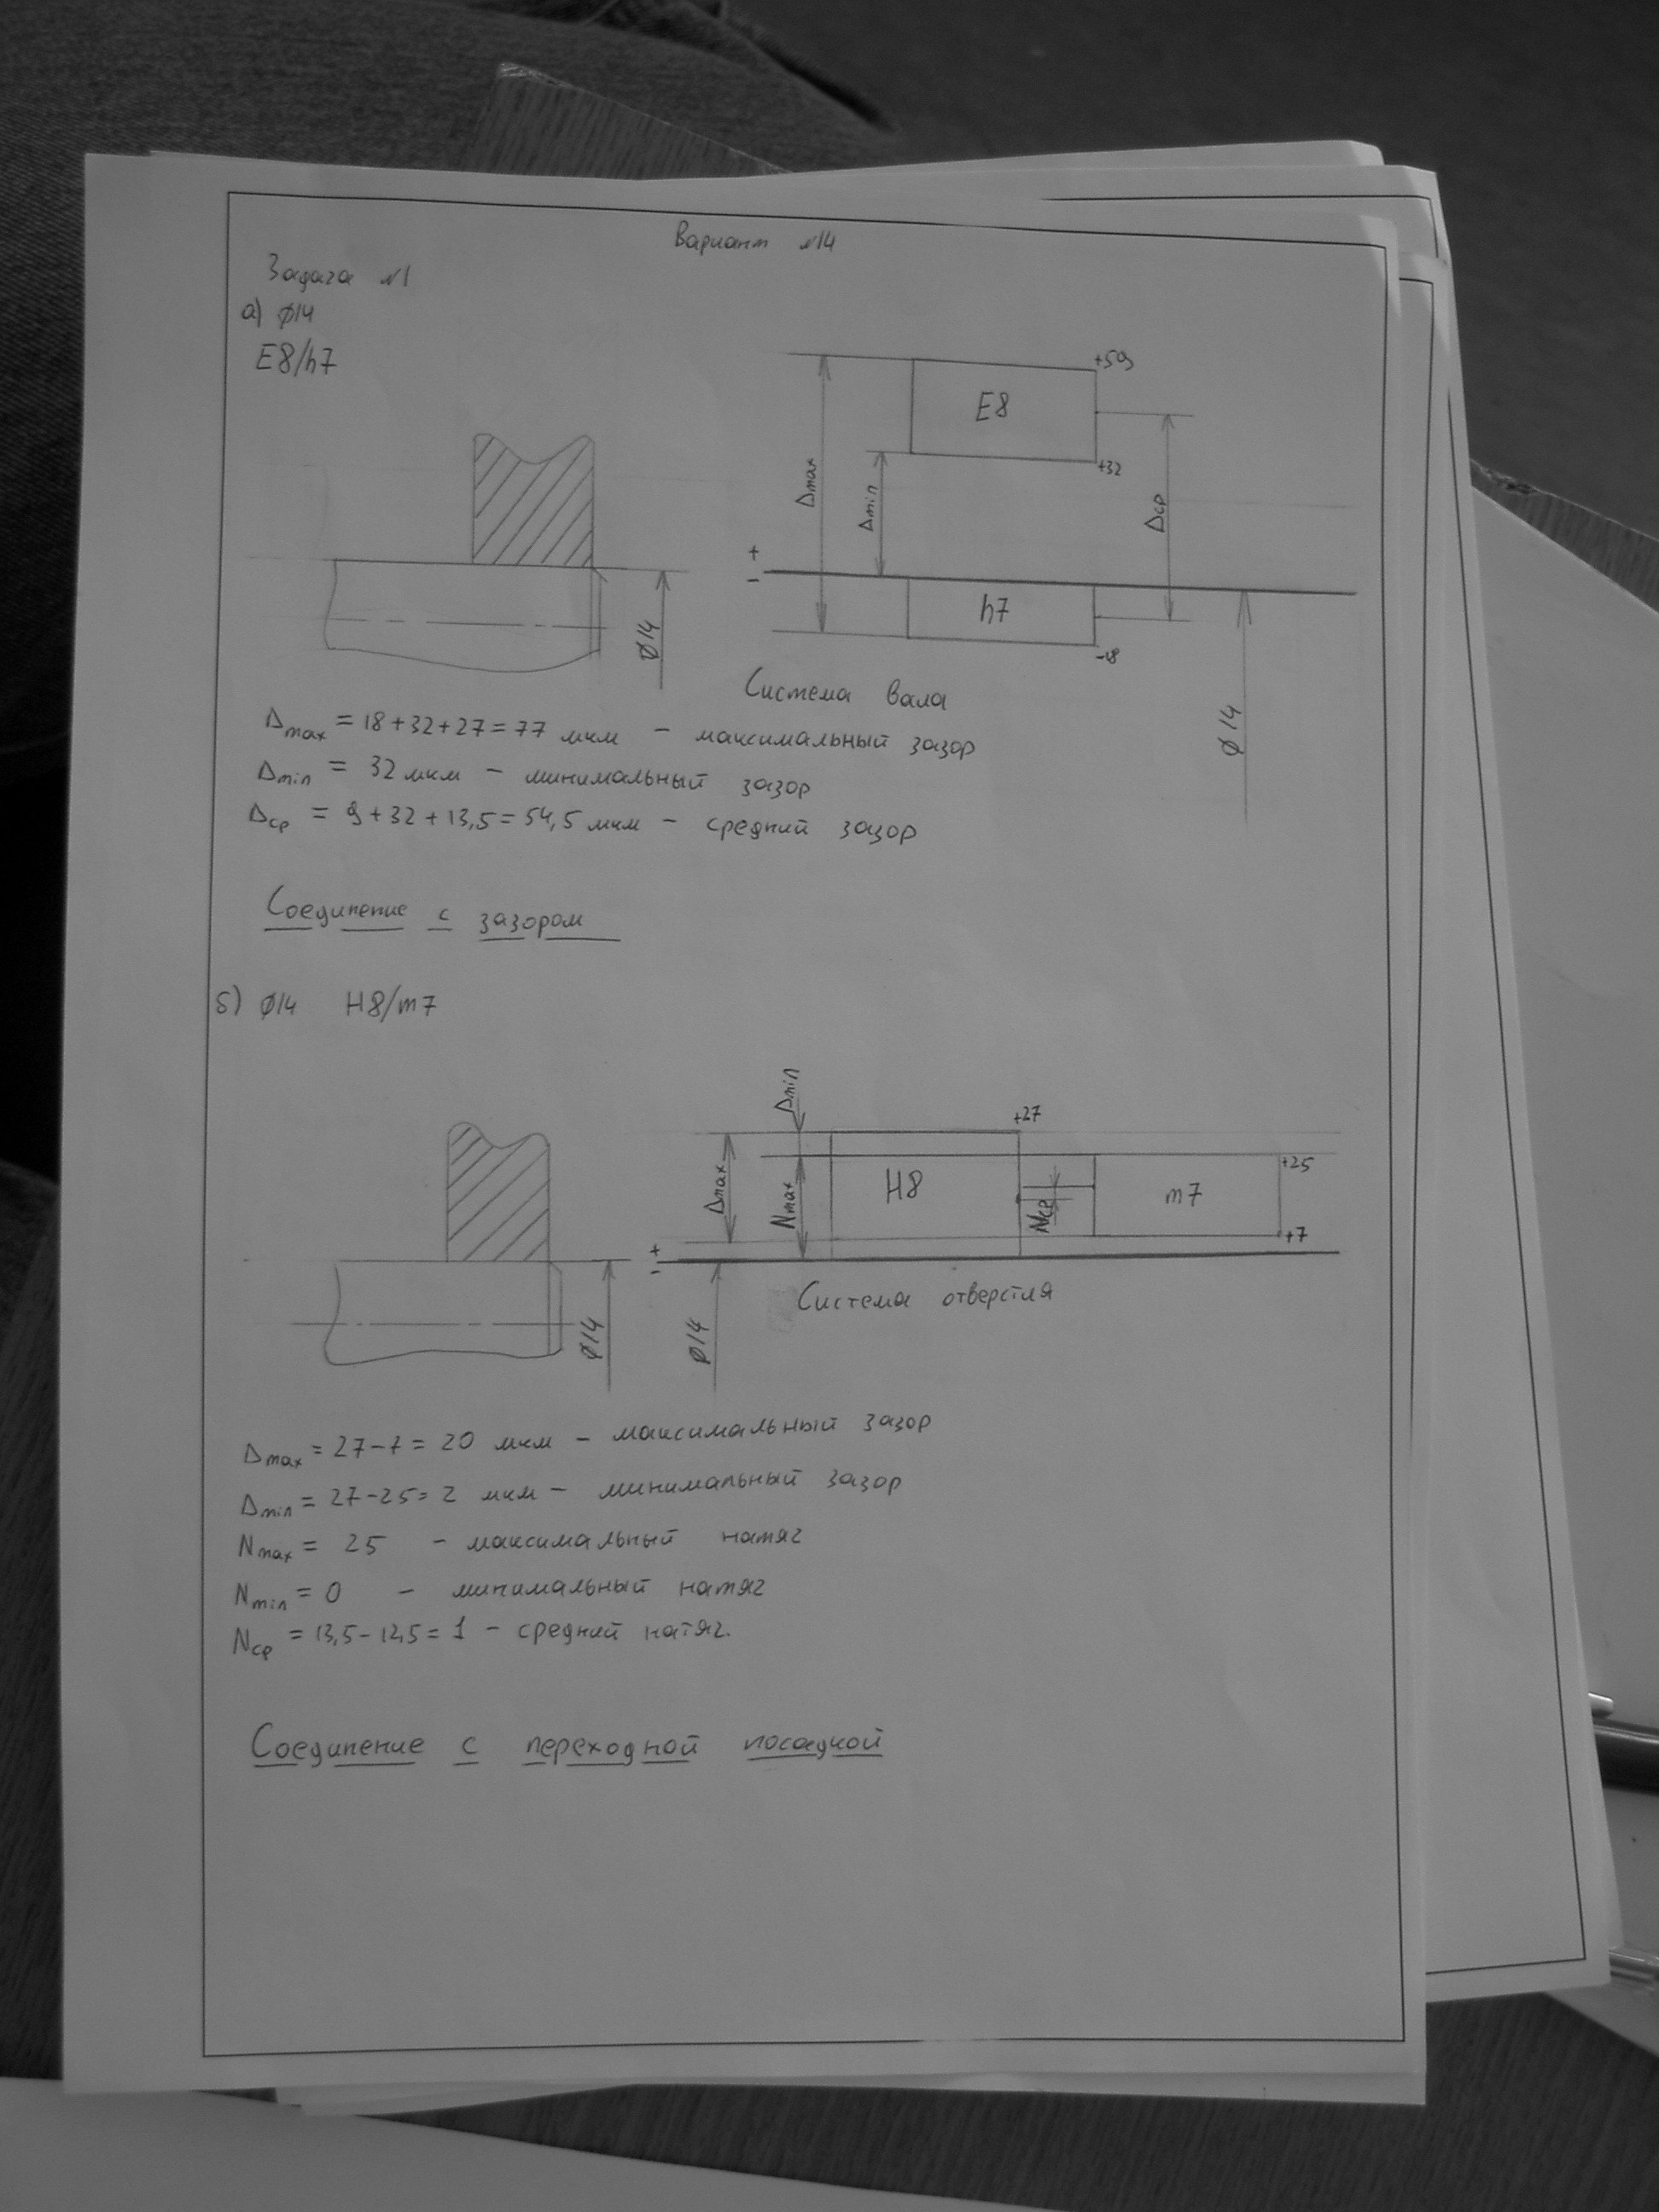 Вариант №14
Задача №1
а) ⌀14
E8/h7
+59
E8
+32
Δmax
Δmin
Δср
+
−
h7
-18
⌀14
⌀14
Система вала
Δmax = 18+32+27=77 мкм – максимальный зазор
Δmin = 32 мкм – минимальный зазор
Δср = 9+32+13,5=54,5 мкм – средний зазор
Соединение с зазором
б) ⌀14 H8/m7
Δmin
+27
Δmax
Nmax
H8
Nср
m7
+25
+7
+
−
⌀14
⌀14
Система отверстия
Δmax = 27-7 = 20 мкм – максимальный зазор
Δmin = 27-25= 2 мкм – минимальный зазор
Nmax = 25 – максимальный натяг
Nmin = 0 – минимальный натяг
Nср = 13,5-12,5= 1 – средний натяг.
Соединение с переходной посадкой